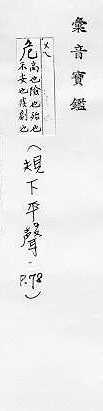 彙音寶鑑
ㄨㄟ
危
高也險也殆也
不安也劇也
(規下平聲,P.78)